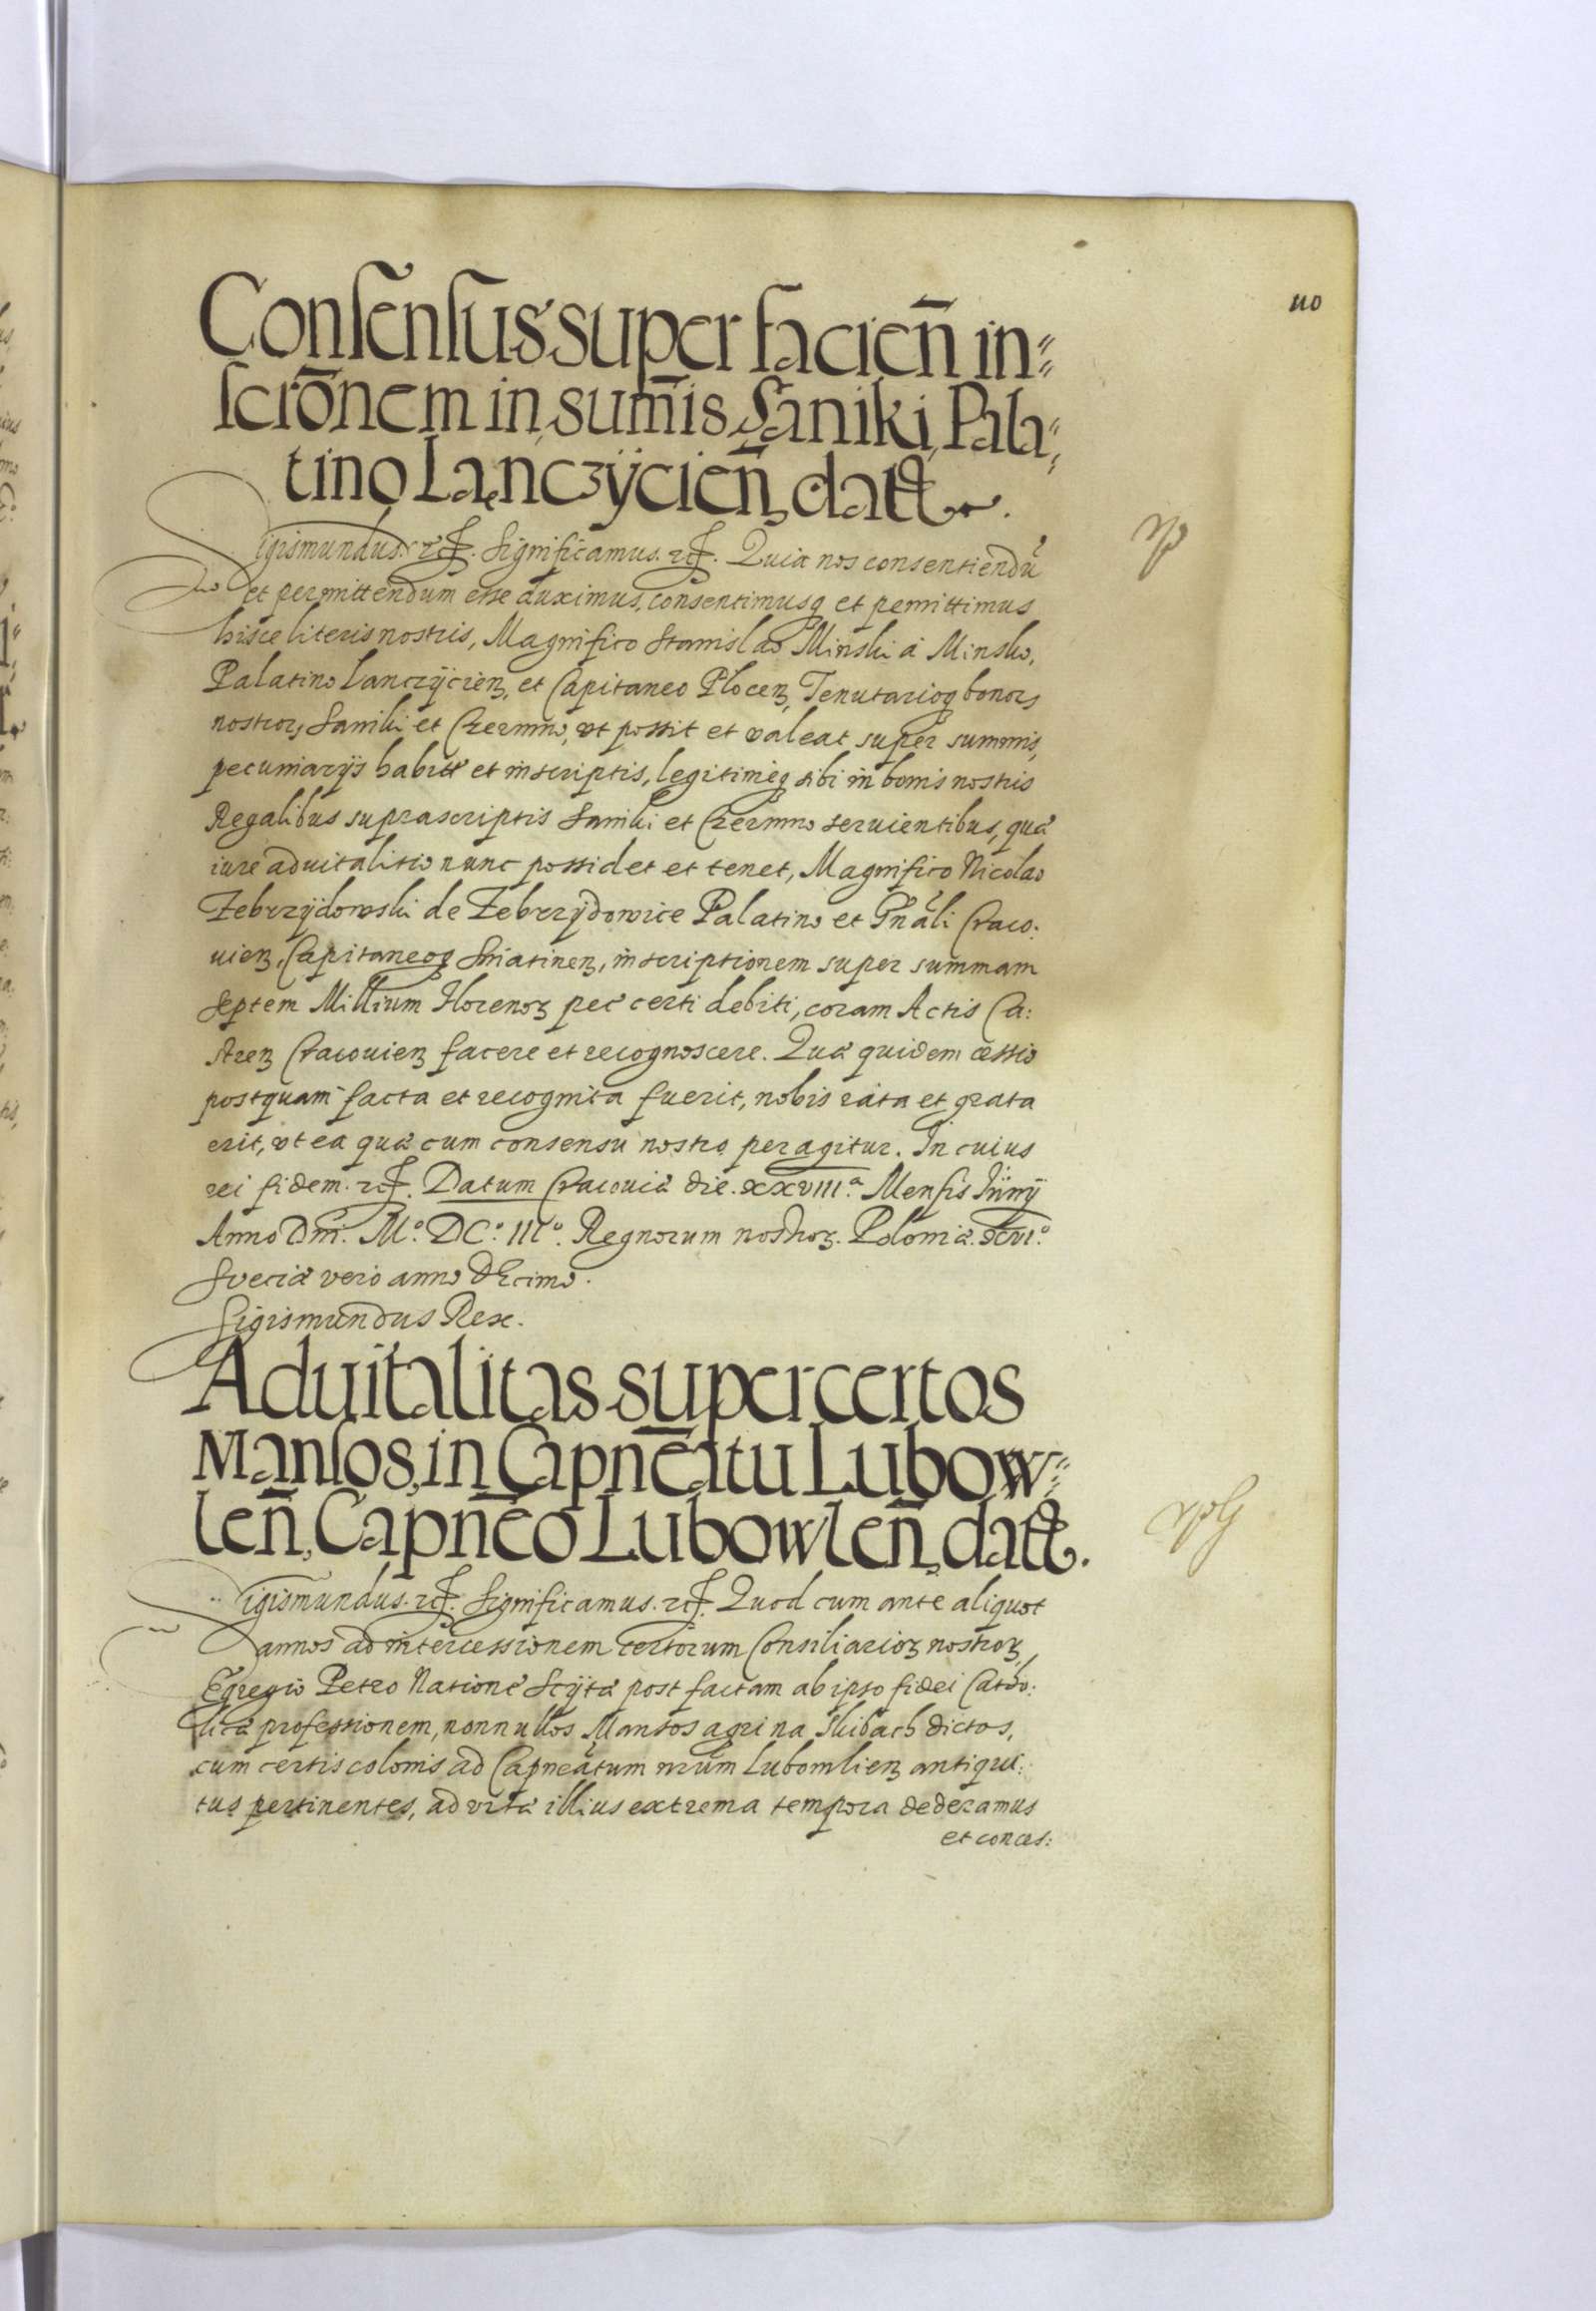 110
Consensus super facien̄ in=
scrōnem in sum̄is Saniki, Pala=
tino Lanczÿcien̄, datt.
Sigismundus. etc. Significamus. etc. Quia nos consentiendū
et permittendum esse duximus, consentimusq et permittimus
hisce literis nostris, Magnifico Stanislao Minski à Minsko,
Palatino Lanczÿcien, et Capitaneo Plocen, Tenutarioq bonor
nostror, Saniki et Czermno, vt possit et valeat super summis,
pecuniarijs habitis et inscriptis, legitimeq sibi in bonis nostris
Regalibus suprascriptis Saniki et Czermno seruientibus, quæ
iure aduitalitio nunc possidet et tenet, Magnifico Nicolao
Zebrzÿdowski de Zebrzÿdowice Palatino et Gn̄ali Craco:
uien, Capitaneoq Sniatinen, inscriptionem super summam
septem Millium florenor pec certi debiti, coram Actis Ca:
stren Cracouien facere et recognoscere. Quæ quidem cessio
postquam facta et recognita fuerit, nobis rata et grata
erit, vt ea quæ cum consensu nostro peragitur. In cuius
rei fidem. etc. Datum Cracouiæ die. XXVIII.ª Mensis Junij
Anno Dni. M.º DC.º IIIº. Regnorum nostror. Poloniæ. XVI.º
Sveciæ vero anno decimo.
Sigismundus Rex.
Aduitalitas super certos
Mansos, in Capnēatu Lubow=
len̄, Capnēo Lubowlen̄, datt.
Sigismundus. etc. Significamus. etc. Quod cum ante aliquot
annos ad intercessionem certorum Consiliarior nostror,
Egregio Petro Natione Scÿta post factam ab ipso fidei Catho:
licæ professionem, nonnullos Mansos agri na Skibach dictos,
cum certis colonis ad Capneatum nrūm Lubomlien antiqui:
tus pertinentes, ad vitæ illius extrema tempora dederamus
et conces: